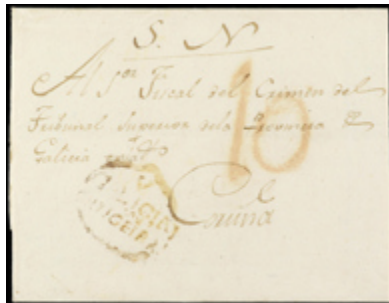 S. N
Al Sor Fiscal del Crimen del
Tribunal Superior dela Provincia
Galicia
10
Coruña